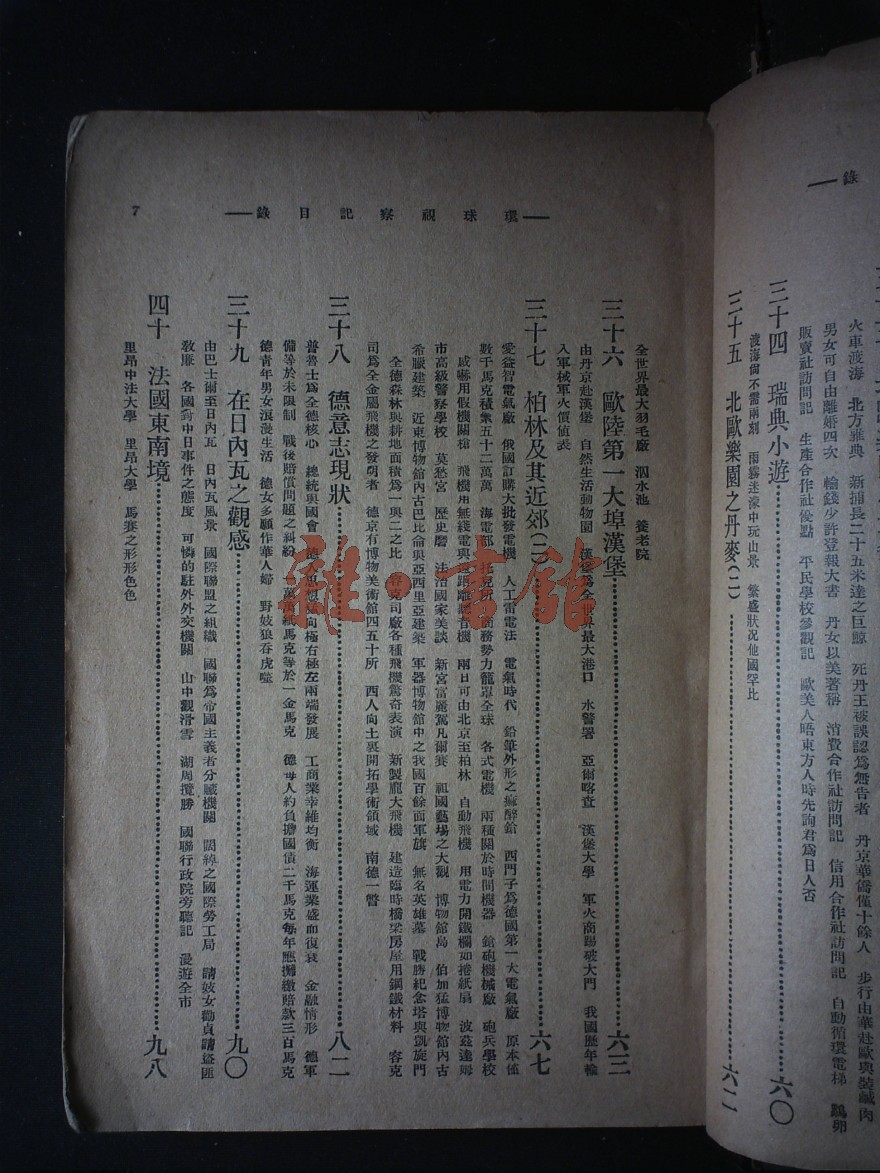 錄
火車渡海　北方雅典　新捕長二十五米達之巨鯨　死丹王被誤認爲無告者　丹京華僑僅十餘人　步行由華赴歐與裝鹹肉
男女可自由離婚四次　輸錢少許登報大書　丹女以美著稱　消費合作社訪問記　信用合作社訪問記　自動循環電梯　鷄卵
販賣社訪問記　生產合作社優點　平民學校參觀記　歐美人晤東方人時先詢君爲日人否
三十四　瑞典小遊……六〇
渡海尙不需兩刻　雨霧迷濛中玩山景　繁盛狀況他國罕比
三十五　北歐樂園之丹麥(二)……六二
環球視察記目錄
7
全世界最大羽毛廠　泅水池　養老院
三十六　歐陸第一大埠漢堡……六三
由丹京赴漢堡　自然生活動物園　漢堡爲全世界最大港口　水警署　亞爾喀查　漢堡大學　軍火商踢破大門　我國歷年輸
入軍械軍火價値表
三十七　柏林及其近郊(二)……六七
愛益智電氣廠　俄國訂購大批發電機　人工雷電法　電氣時代　鉛筆外形之痲醉鎗　西門子爲德國第一大電氣廠　原本値
數千馬克積紮五十二萬萬　海電部　托克所　商務勢力籠罩全球　各式電機　兩種關於時間機器　鎗砲機械廠　砲兵學校
威嚇用假機關槍　飛機用無綫電與距離聽音機　兩日可由北京至柏林　自動飛機　用電力開鐵欄如捲紙扇　波茲達姆
市高級警察學校　莫愁宮　歷史磨　法治國家美談　新宮富麗駕凡爾賽　祖國藝場之大觀　博物館島　伯加猛博物館內古
希臘建築　近東博物館內古巴比倫與亞西里亞建築　軍器博物館中之我國百餘面軍旗　無名英雄墓　戰勝紀念塔與凱旋門
全德森林與耕地面積爲一與二之比　容克司廠各種飛機驚奇表演　新製龐大飛機　建造臨時橋梁房屋用鋼鐵材料　容克
司爲全金屬飛機之發明者　德京有博物美術館四五十所　西人向土裏開拓學術領域　南德一瞥
三十八　德意志現狀……八二
普魯士爲全德核心　總統與國會　德人思想傾向極右極左兩端發展　工商業幸維均衡　海運業盛而復衰　金融情形　德軍
備等於未限制　戰後賠償問題之糾紛　一萬萬紙馬克等於一金馬克　德每人約負擔國債二千馬克每年應攤繳賠款三百馬克
德青年男女浪漫生活　德女多願作華人婦　野妓狼吞虎嚥
三十九　在日內瓦之觀感……九〇
由巴士爾至日內瓦　日內瓦風景　國際聯盟之組織　國聯爲帝國主義者分贓機關　闊綽之國際勞工局　請妓女勸貞請盜匪
敎賬　各國對中日事件之態度　可憐的駐外外交機關　山中觀滑雪　湖周攬勝　國聯行政院旁聽記　漫遊全市
四十　法國東南境……九八
里昂中法大學　里昂大學　馬賽之形形色色
雜·书館